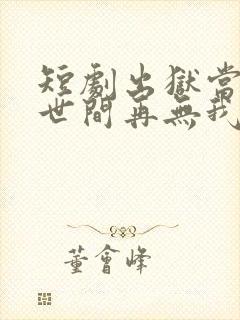 短劇出獄當
世間再無我
董會峰